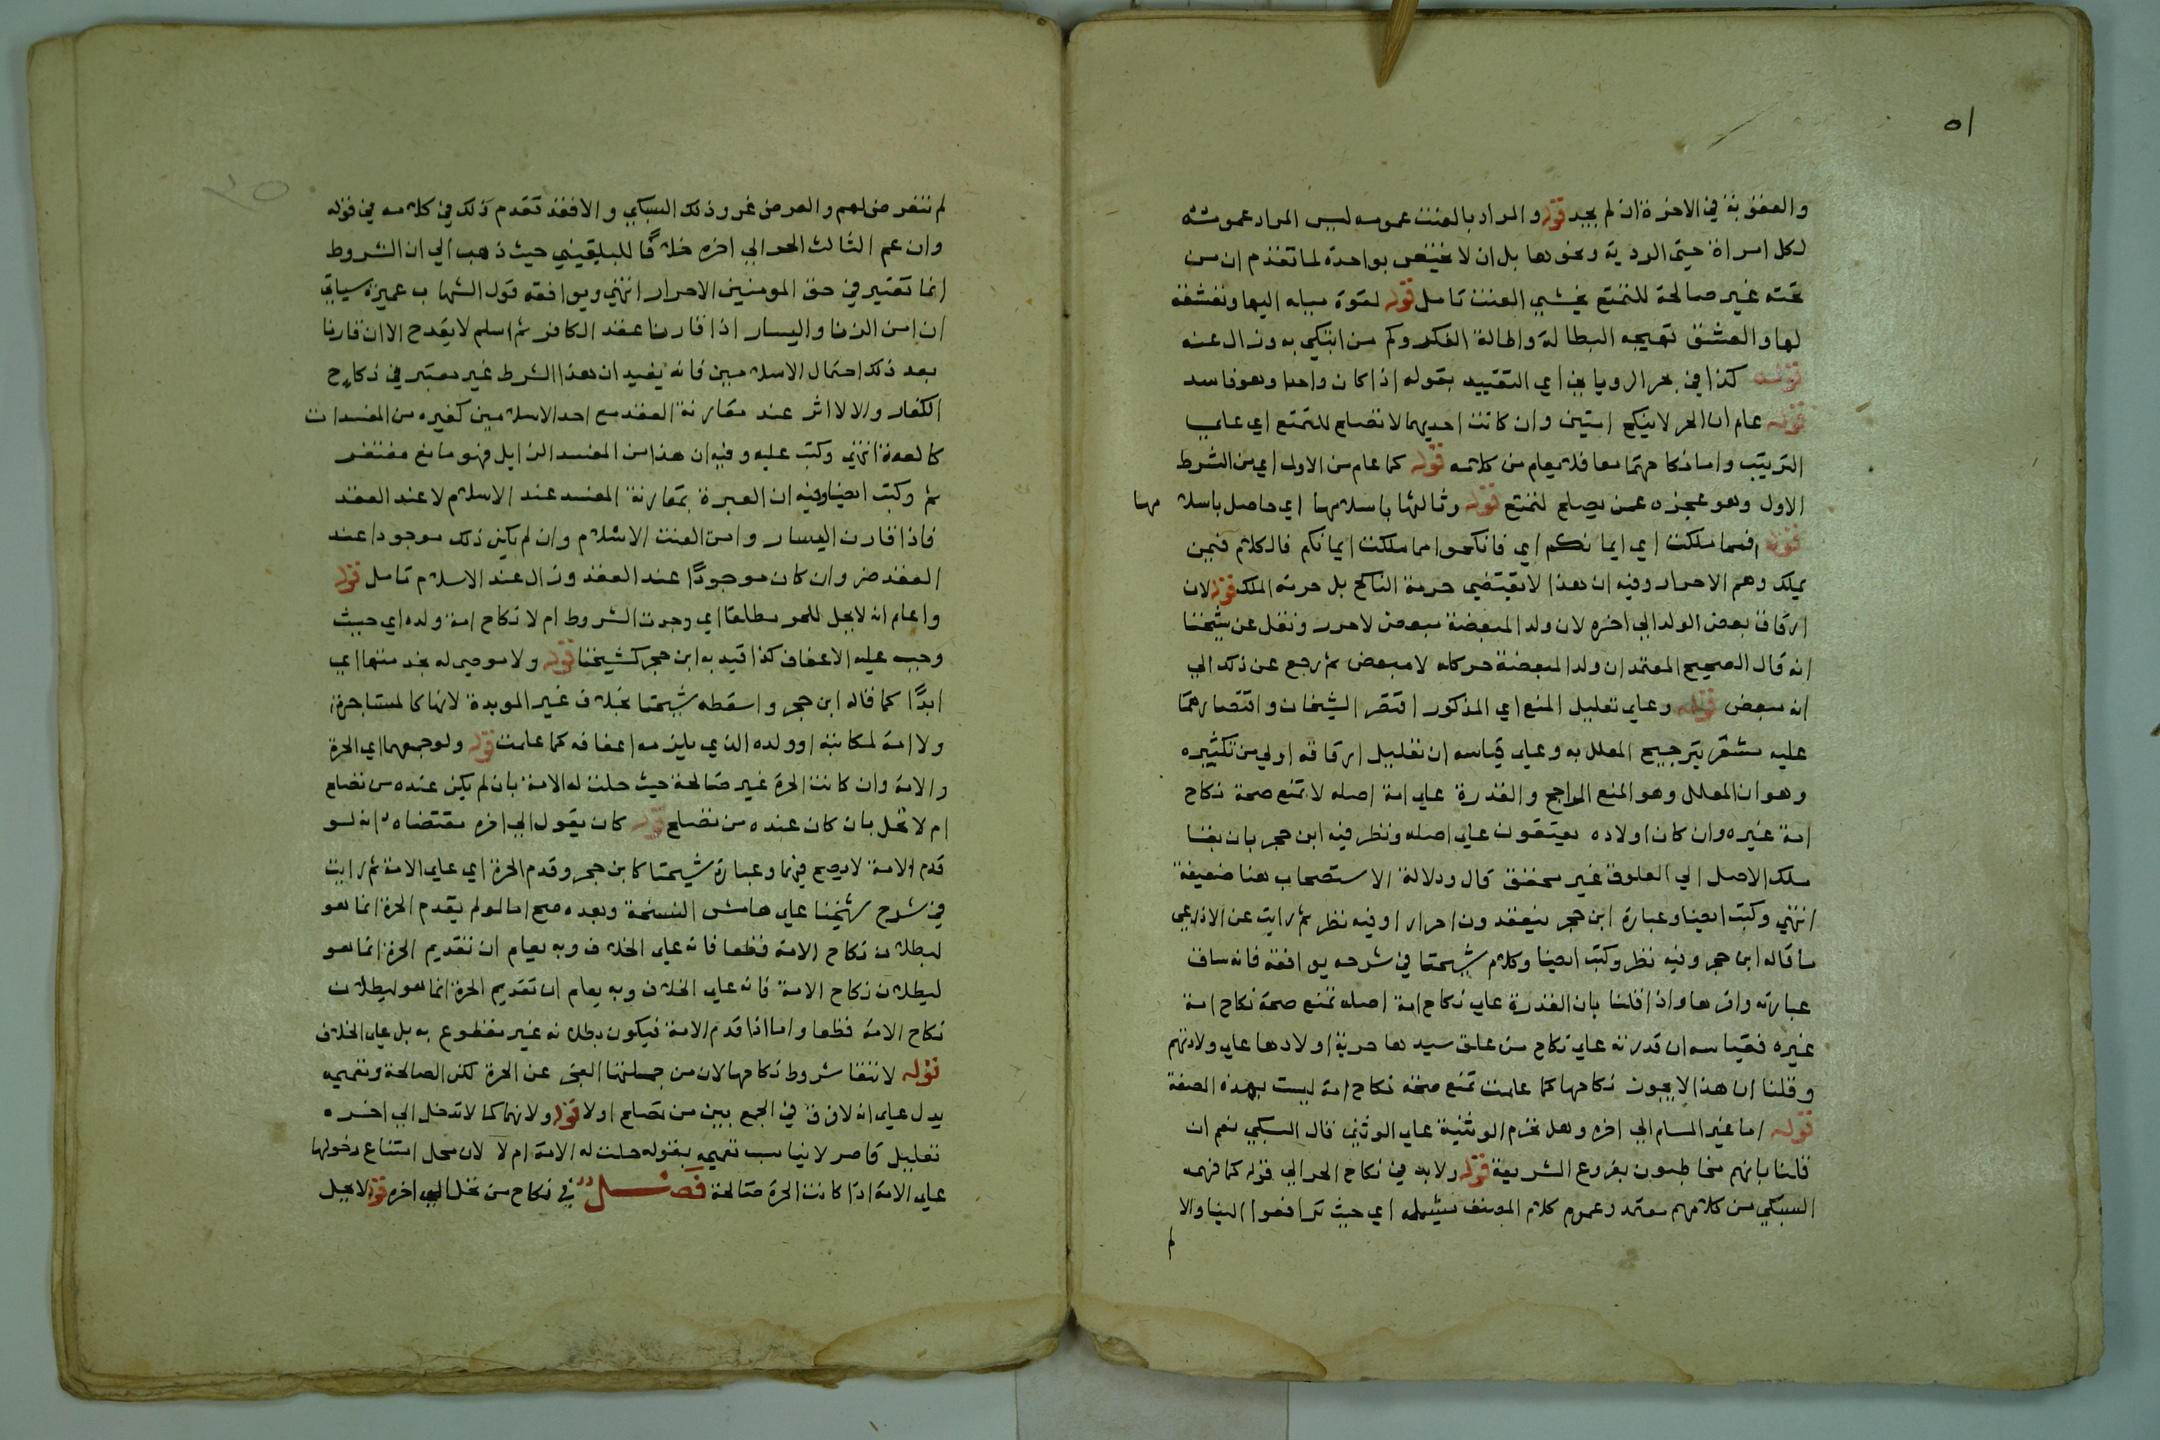 ٥١
والعقوبة في الاخرة ان لم يجد قوله والمراد بالعنت عمومه ليس المراد عمومته
لكل امراة حتى الردية ونحوها بل ان لا يختص بواحدة لما تقدم ان من
تحته غير صالحة للتمتع يخشى العنت تامل قوله لقوة ميله اليها وتعشقه
لها والعشق تهيجه البطالة واطالة الفكر وكم من ابتلي به وزال عنه
قوله كذا في بحر الروياني اي التقييد بقوله اذا كان واحدا وهو فاسد
قوله علم ان الحر لا ينكح امتين وان كانت احديهما لا تصلح للتمتع اي على
الترتيب واما نكاحهما معا فلا يعلم من كلامه قوله كما علم من الاول اي من الشرط
الاول وهو عجزه عمن يصلح لتمتع قوله وثالثها باسلامها اي حاصل باسلامها
قوله فمما ملكت ايمانكم اي فانكحوا مما ملكت ايمانكم فالكلام فيمن
يملك وهم الاحرار وفيه ان هذا لا يقتضي حرمة الناكح بل حرمة الملك قوله لان
ارقاق بعض الولد الى اخره لان ولد المبعضة مبعض لا حر ونقل عن شيخنا
انه قال الصحيح المعتمد ان ولد المبعضة حر كله لا مبعض ثم رجع عن ذلك الى
انه مبعض قوله وعلى تعليل المنع اي المذكور اقتصر الشيخان واقتصارهما
عليه مشعر بترجيح المعلل به وعلى قياسه ان تقليل ارقاقه اولى من تكثيره
وهو ان المعلل وهو المنع الراجح والقدرة على امة اصله لا تمنع صحة نكاح
امة غيره وان كان اولاده يعتقون على اصله ونظر فيه ابن حجر بان بقا
ملك الاصل الى العلوق غير محقق قال ودلالة الاستصحاب هنا ضعيفة
انتهى وكتب ايضا وعبارة ابن حجر ينعقدون احرارا وفيه نظر ثم رايت عن الاذرعي
ما قاله ابن حجر وفيه نظر وكتب ايضا وكلام شيخنا في شرحه يوافقه فانه ساق
عبارته واقرها واذا قلنا بان القدرة على نكاح امة اصله تمنع صحة نكاح امة
غيره فقياسه ان قدرته على نكاح من علق سيدها حرية اولادها على ولادتهم
وقلنا ان هذا لا يجوز نكاحها كما علمت تمنع صحة نكاح امة ليست بهذه الصفة
قوله اما غير المسلم الى اخره وهل تحرم الوثنية على الوثني قال السبكي نعم ان
قلنا بانهم مخاطبون بفروع الشريعة قوله ولا بد في نكاح الحر الى قوله كما فهمه
السبكي من كلامهم معتمد وعموم كلام المصنف يشمله اي حيث ترافعوا الينا والا
لم
لم نتعرض لهم والعرض غرر وذلك السبكي والا فقد تقدم ذلك في كلامه في قوله
وان عم الثالث الحر الى اخره خلافًا للبلقيني حيث ذهب الى ان الشروط
انما تعتبر في حق المومنين الاحرار انتهى ويوافقه قول الشهاب عميرة سياتي
ان امن الزنا واليسار اذا قارنا عقد الكافر ثم اسلم لا يقدح الا ان قارنا
بعد ذلك احتمال الاسلامين فانه يفيد ان هذا الشرط غير معتبر في نكاح
الكفار والا لا اثر عند مقارنة العقد مع احد الاسلامين كغيره من المفسدات
كالعدة انتهى وكتب عليه وفيه ان هذا من المفسد الزايل فهو مانع مغتفر
ثم وكتب ايضا وفيه ان العبرة بمقارنة المفسد عند الاسلام لا عند العقد
فاذا قارن اليسار وامن العنت الاسلام وان لم يكن ذلك موجودا عند
العقد ضر وان كان موجودًا عند العقد وزال عند الاسلام تامل قوله
واعلم انه لا يحل للحر مطلقا اي وجدت الشروط ام لا نكاح امة ولده اي حيث
وجب عليه الاعفاف كذا قيد به ابن حجر كشيخنا قوله ولا موصى له بخدمتها اي
ابدًا كما قاله ابن حجر واسقطه شيخنا بخلاف غير الموبدة لانها كالمستاجرة
ولا امة لمكاتبه او ولده الذي يلزمه اعفافه كما علمت قوله ولو جمعهما اي الحرة
والامة وان كانت الحرة غير صالحة حيث حلت له الامة بان لم يكن عنده من تصلح
ام لا تحل بان كان عنده من تصلح قوله كان يقول الى اخره مقتضاه انه لو
قدم الامة لا يصح فيهما وعبارة شيخنا كابن حجر وقدم الحرة اي على الامة ثم رايت
في شرح شيخنا على هامش النسخة وبعده صح اما لو لم يقدم الحرة انما هو
لبطلان نكاح الامة قطعا فانه على الخلاف وبه يعلم ان تقديم الحرة انما هو
لبطلان نكاح الامة فانه على الخلاف وبه يعلم ان تقديم الحرة انما هو لبطلان
نكاح الامة قطعا واما اذا قدم الامة فيكون بطلانه غير مقطوع به بل على الخلاف
قوله لانتفا شروط نكاحها لان من جملتها العجز عن الحرة لكن الصالحة وتعميمه
يدل على انه لا فرق في الجمع بين من تصلح او لا قوله ولانها كما لا تدخل الى اخره
تعليل قاصر لا يناسب تعميمه بقوله حلت له الامة ام لا لان محل امتناع دخولها
على الامة اذا كانت الحرة صالحة فصل في نكاح من تحل الى اخره قوله لا يحل